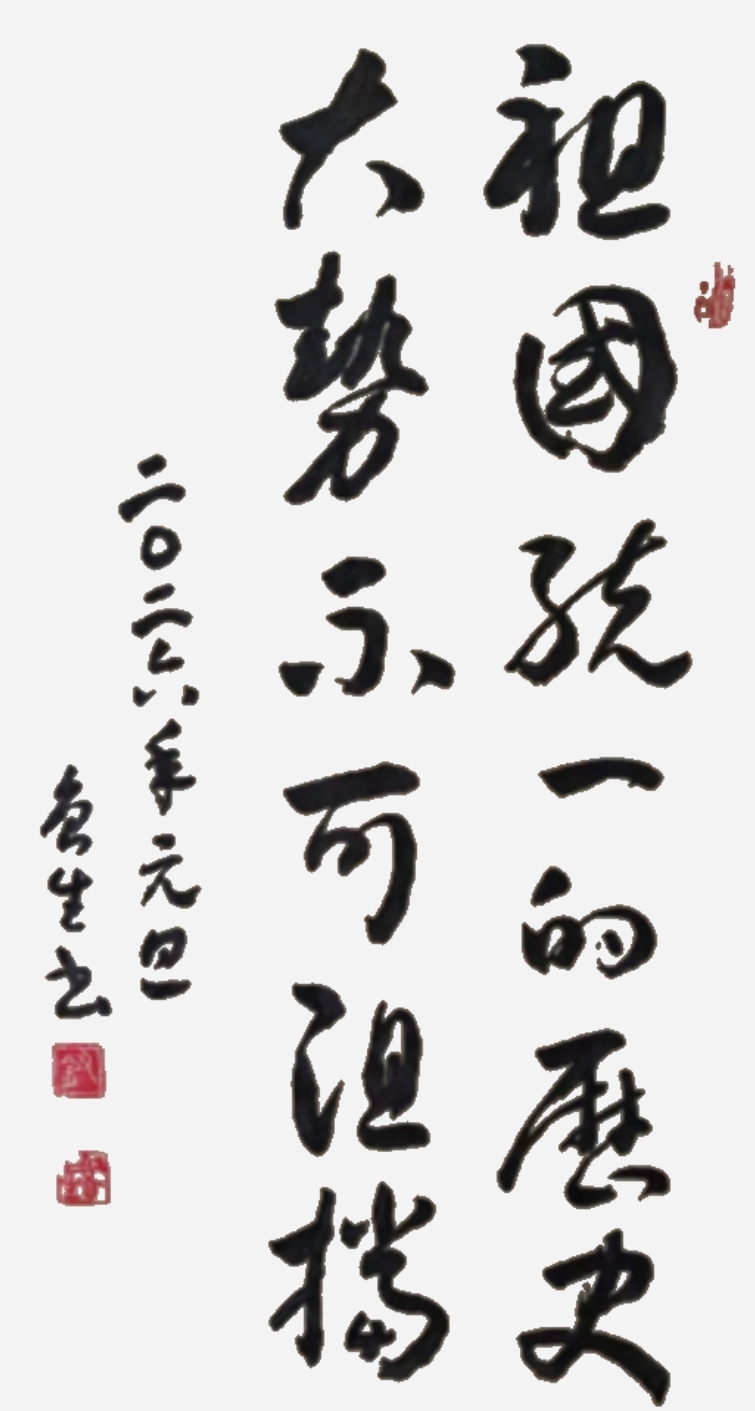 祖國統一的歷史
大勢不可阻擋
二〇二六年元旦
生书